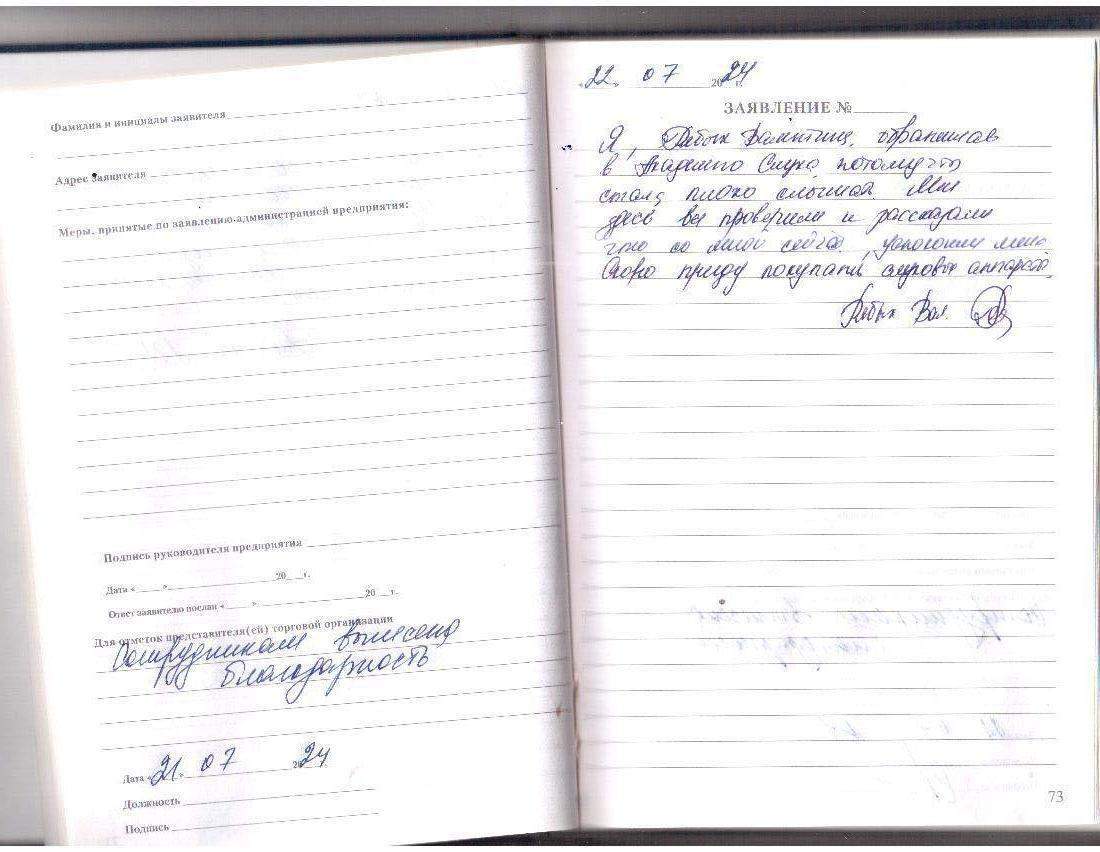 Фамилия и инициалы заявителя
Адрес заявителя
Меры, принятые по заявлению администрацией предприятия:
Подпись руководителя предприятия
Дата « » 20 г.
Ответ заявителю послан « » 20 г.
Для отметок представителя(ей) торговой организации
Сотрудникам вынесена
благодарность
Дата «21» 07 2024
Должность
Подпись
«22» 07 2024
ЗАЯВЛЕНИЕ №
Я, Валентина, обратилась
в Академию Слуха, потому что
стала плохо слышать. Мне
здесь все проверили и рассказали
что со мной сейчас, успокоили меня
Скоро приду покупать слуховые аппараты.
Вал.
73